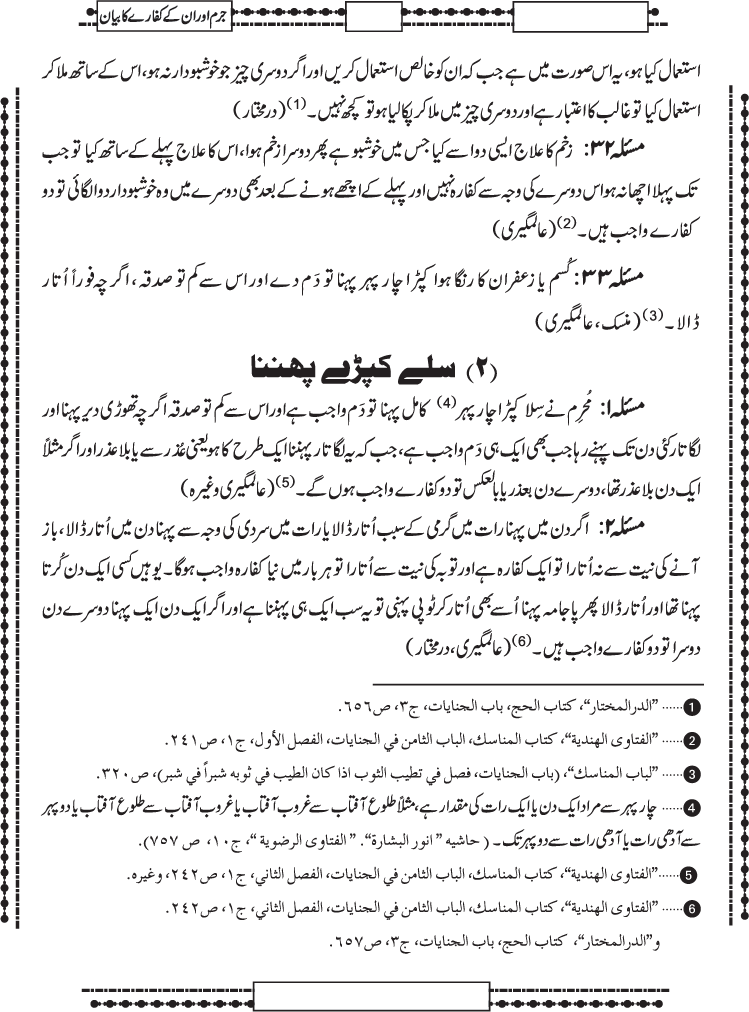 جرم اور ان کے کفارے کا بیان
استعمال کیا ہو، یہ اس صورت میں ہے جب کہ ان کو خالص استعمال کریں اور اگر دوسری چیز جو خوشبودار نہ ہو، اس کے ساتھ ملا کر
استعمال کیا تو غالب کا اعتبار ہے اور دوسری چیز میں ملا کر پکا لیا ہو تو کچھ نہیں۔ (1) (درمختار)
مسئلہ ۳۲: زخم کا علاج ایسی دوا سے کیا جس میں خوشبو ہے پھر دوسرا زخم ہوا، اس کا علاج پہلے کے ساتھ کیا تو جب
تک پہلا اچھا نہ ہو اس دوسرے کی وجہ سے کفارہ نہیں اور پہلے کے اچھے ہونے کے بعد بھی دوسرے میں وہ خوشبودار دوا لگائی تو دو
کفارے واجب ہیں۔ (2) (عالمگیری)
مسئلہ ۳۳: کُسم یا زعفران کا رنگا ہوا کپڑا چار پہر پہنا تو دَم دے اور اس سے کم تو صدقہ، اگرچہ فوراً اُتار
ڈالا۔ (3) (منسک، عالمگیری)
(۲) سلے کپڑے پہننا
مسئلہ ۱: مُحرِم نے سِلا کپڑا چار پہر (4) کامل پہنا تو دَم واجب ہے اور اس سے کم تو صدقہ اگرچہ تھوڑی دیر پہنا اور
لگاتار کئی دن تک پہنے رہا جب بھی ایک ہی دَم واجب ہے، جب کہ یہ لگاتار پہننا ایک طرح کا ہو یعنی عُذر سے یا بلاعذر اور اگر مثلاً
ایک دن بلاعذر تھا، دوسرے دن بعذر یا بالعکس تو دو کفارے واجب ہوں گے۔ (5) (عالمگیری وغیرہ)
مسئلہ ۲: اگر دن میں پہنا رات میں گرمی کے سبب اُتار ڈالا یا رات میں سردی کی وجہ سے پہنا دن میں اُتار ڈالا، باز
آنے کی نیت سے نہ اُتارا تو ایک کفارہ ہے اور توبہ کی نیت سے اُتارا تو ہر بار میں نیا کفارہ واجب ہوگا۔ یوہیں کسی ایک دن کُرتا
پہنا تھا اور اُتار ڈالا پھر پاجامہ پہنا اُسے بھی اُتار کر ٹوپی پہنی تو یہ سب ایک ہی پہننا ہے اور اگر ایک دن ایک پہنا دوسرے دن
دوسرا تو دو کفارے واجب ہیں۔ (6) (عالمگیری، درمختار)
1 ...... ”الدرالمختار“، كتاب الحج، باب الجنايات، ج٣، ص٦٥٦.
2 ...... ”الفتاوى الهندية“، كتاب المناسك، الباب الثامن في الجنايات، الفصل الأول، ج١، ص٢٤١.
3 ...... ”لباب المناسك“، (باب الجنايات، فصل في تطيب الثوب اذا كان الطيب في ثوبه شبراً في شبر)، ص٣٢٠.
4 ...... چار پہر سے مراد ایک دن یا ایک رات کی مقدار ہے، مثلاً طلوع آفتاب سے غروب آفتاب یا غروب آفتاب سے طلوع آفتاب یا دوپہر
سے آدھی رات یا آدھی رات سے دوپہر تک۔ ( حاشيه ” انور البشارة“. ” الفتاوى الرضوية “، ج١٠، ص ٧٥٧).
5 ...... ”الفتاوى الهندية“، كتاب المناسك، الباب الثامن في الجنايات، الفصل الثاني، ج١، ص٢٤٢، وغيره.
6 ...... ”الفتاوى الهندية“، كتاب المناسك، الباب الثامن في الجنايات، الفصل الثاني، ج١، ص٢٤٢.
و”الدرالمختار“، كتاب الحج، باب الجنايات، ج٣، ص٦٥٧.